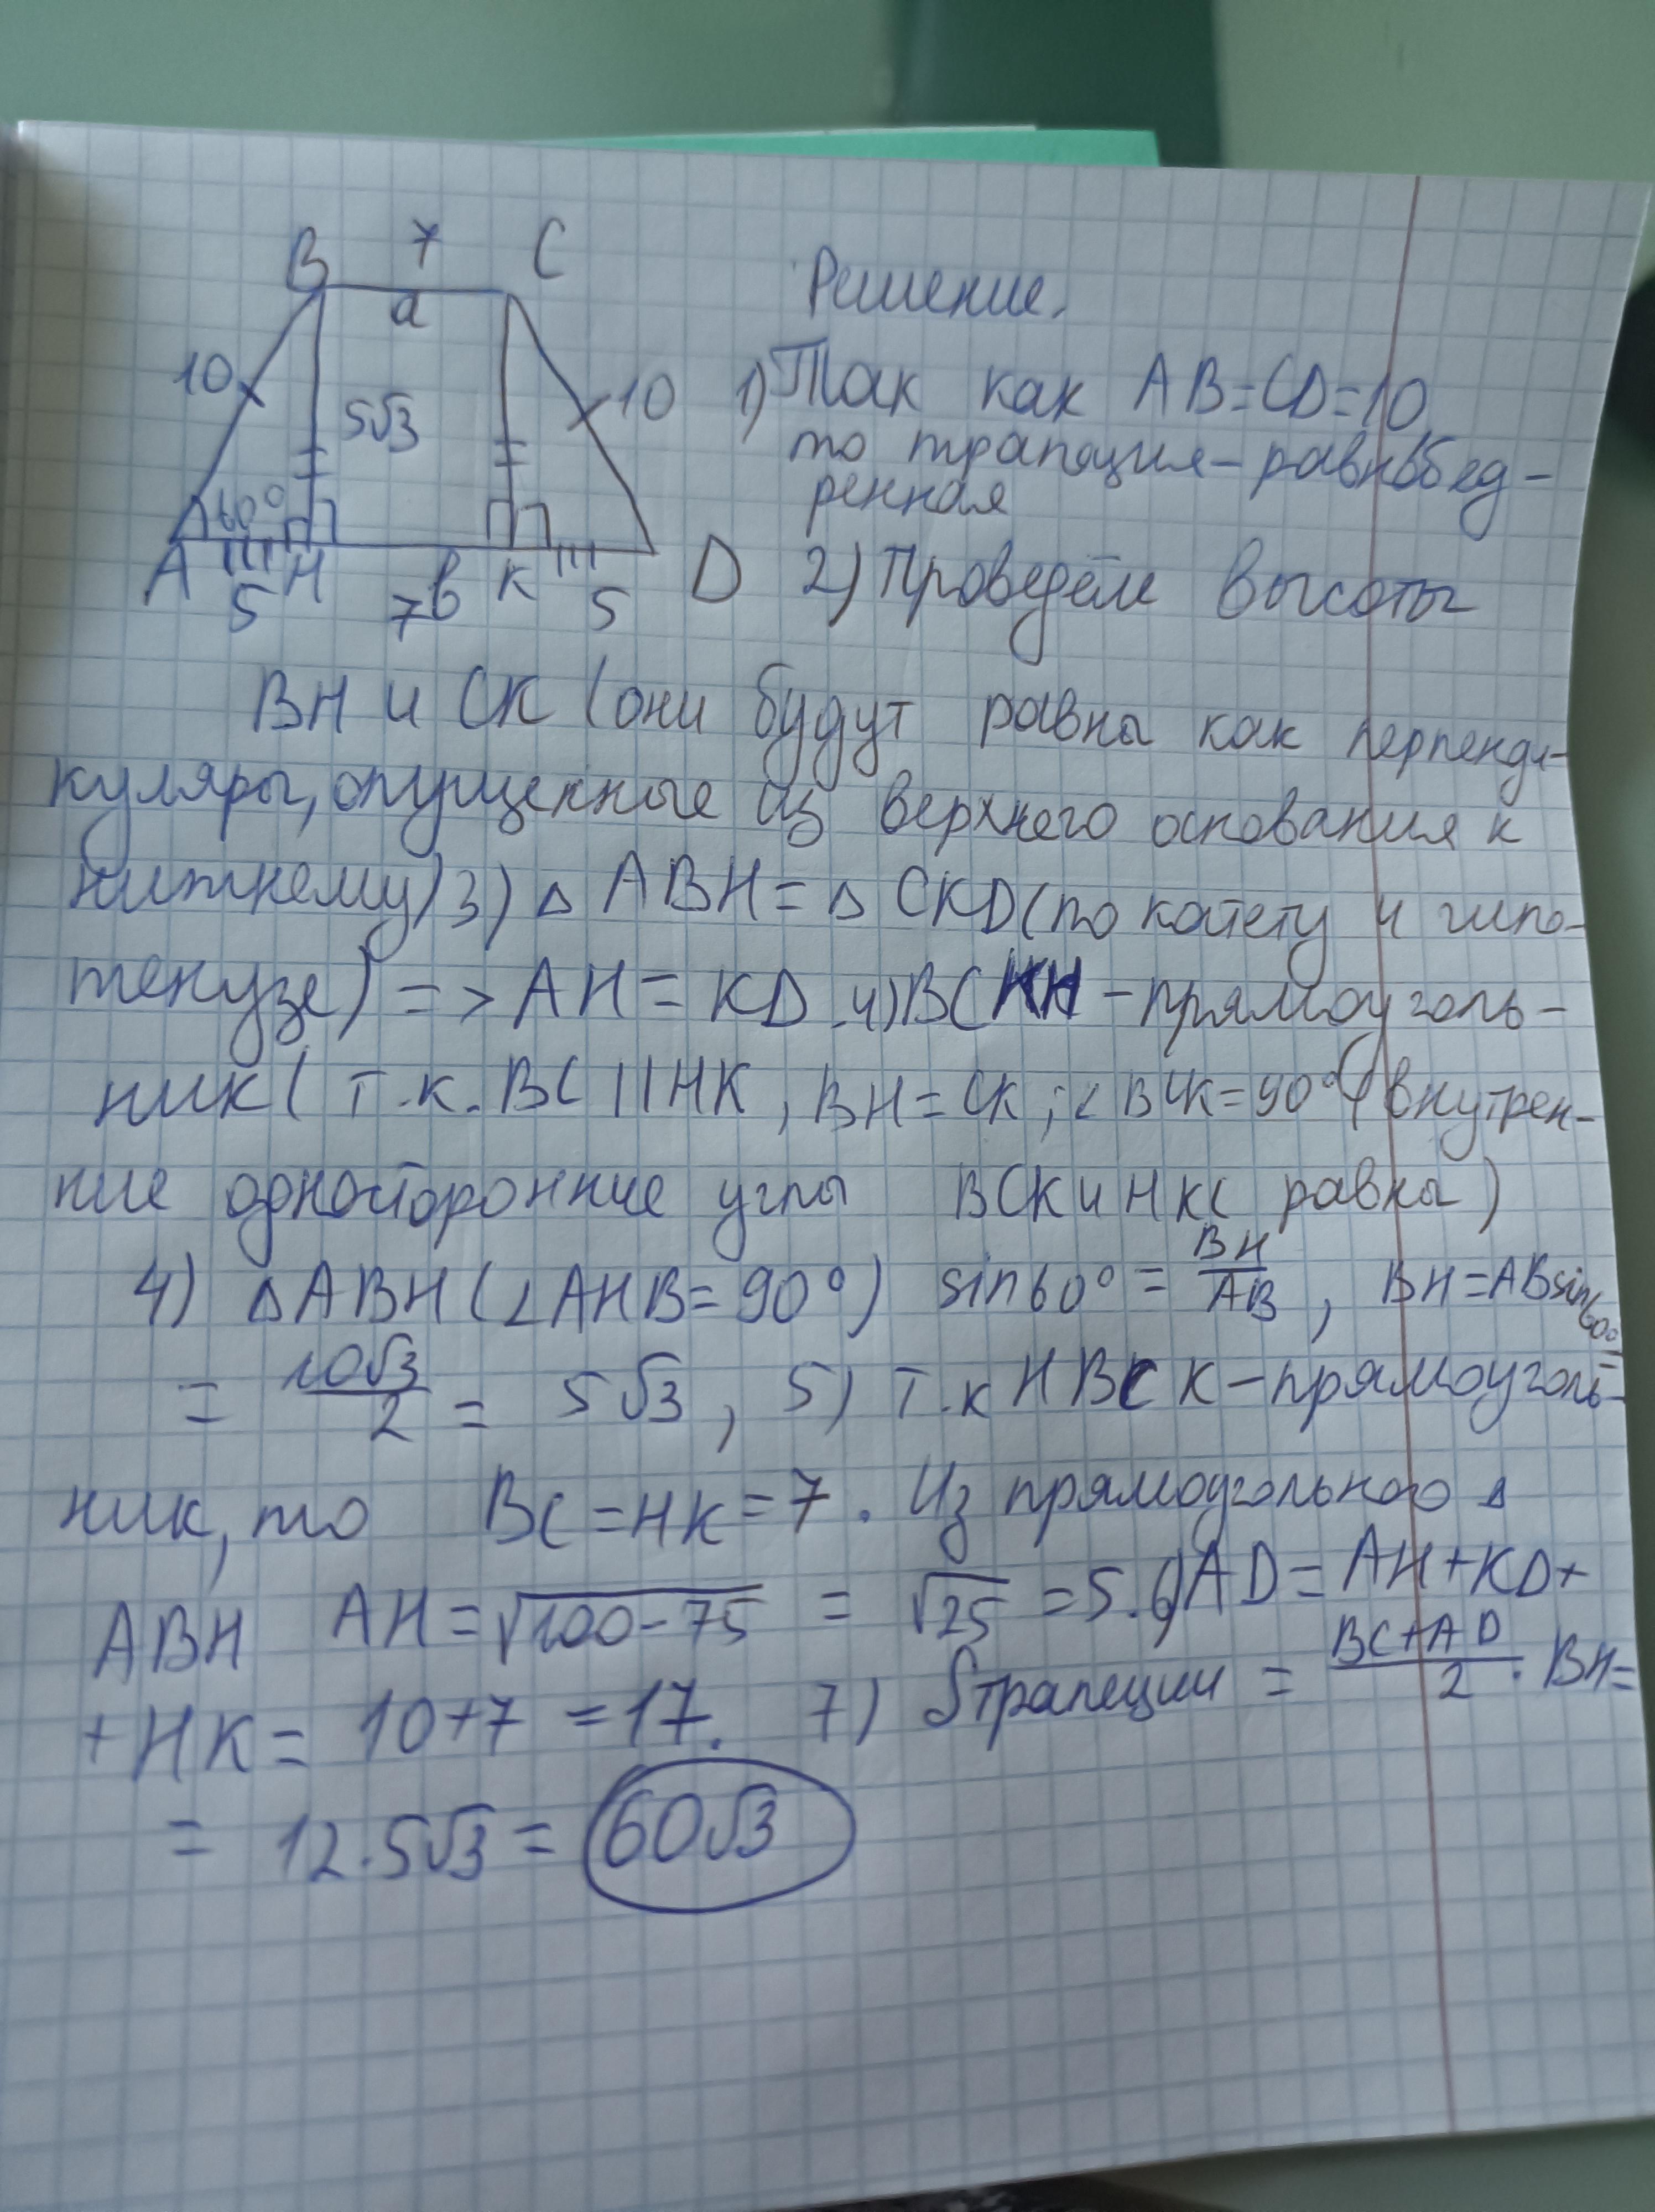 B 7 C
a
Решение.
10 5√3 10
1) Так как AB=CD=10,
то трапеция-равнобед-
ренная
60°
A H K D
5 7 в 5
2) Проведём высоты
BH и CK (они будут равны как перпенди-
куляры, опущенные из верхнего основания к
нижнему) 3) △ ABH = △ CKD (по катету и гипо-
тенузе) => AH = KD. 4) BCKH - прямоуголь-
ник ( т.к. BC || HK, BH = CK; ∠ BCK = 90° (внутрен-
ние односторонние углы BCK и HKC равны)
4) △ ABH (∠AHB = 90°) sin60° = BH/AB, BH = AB sin60° =
= 10√3/2 = 5√3, 5) т.к HBCK - прямоуголь-
ник, то BC = HK = 7. Из прямоугольного △
ABH AH = √100-75 = √25 = 5. 6) AD = AH + KD +
+ HK = 10+7 = 17. 7) Sтрапеции = BC+AD/2 · BH =
= 12·5√3 = 60√3